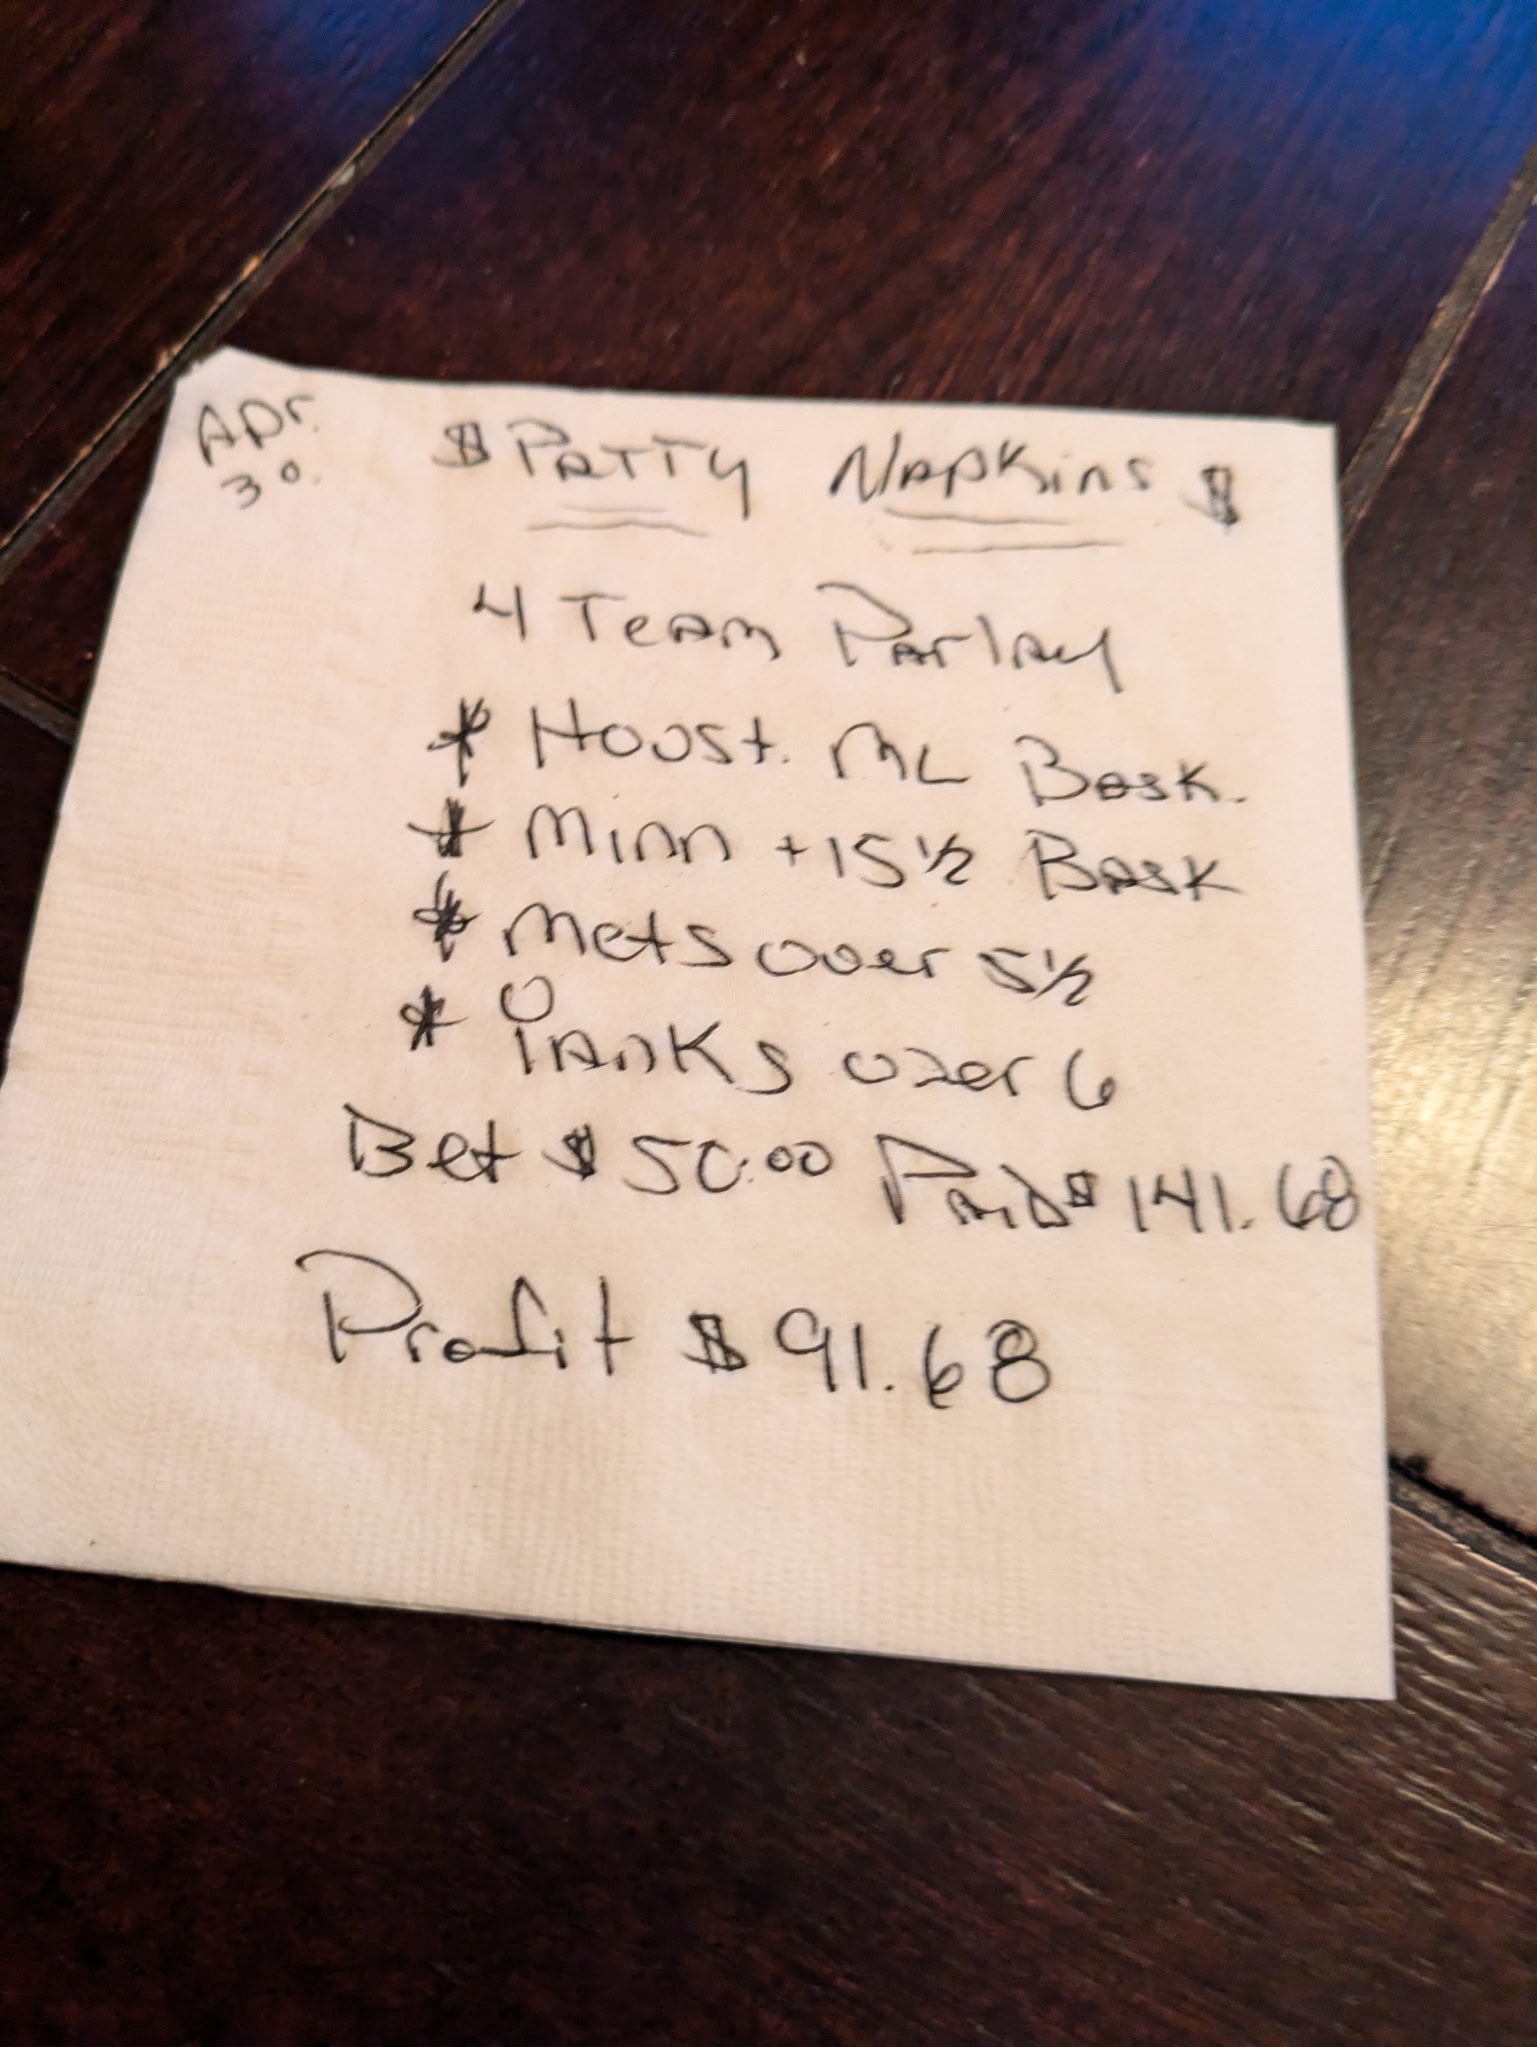 Apr.
30.
$ Patty Napkins $
4 Team Parlay
* Houst. ML Bask.
* Minn + 15 1/2 Bask
* Mets over 5 1/2
* Yanks over 6
Bet $ 50.00 Paid $ 141.68
Profit $ 91.68